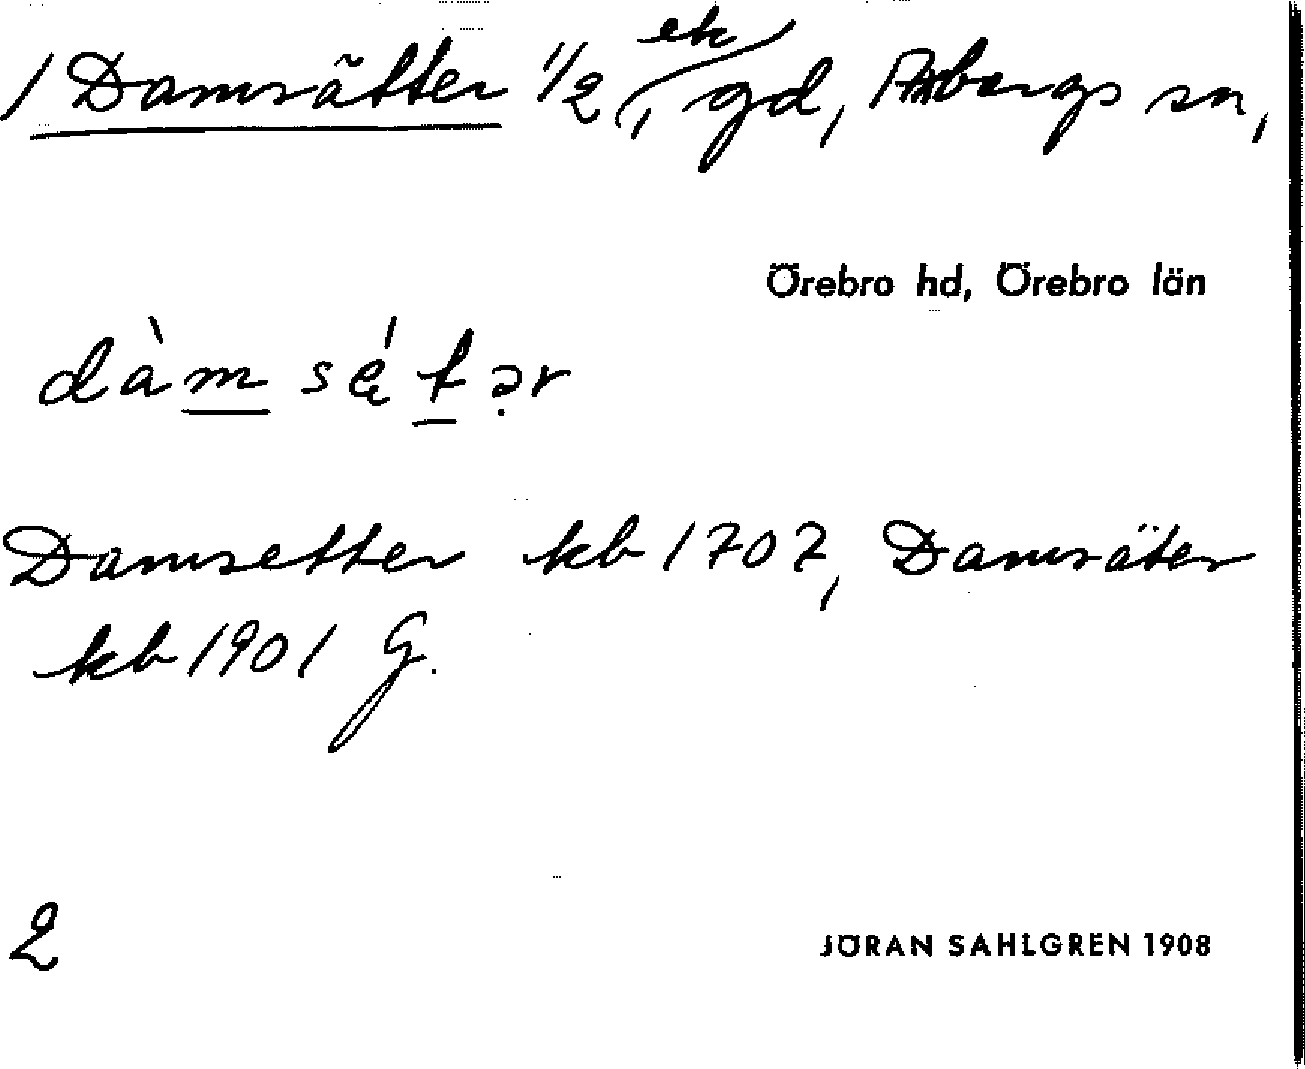 / Damsätter 1/2 ek, gd, Asbergs sn,
Örebro hd, Örebro län
dàm sé̜tər
Damsetter kb 1707, Damsäter
kb 1901 G.
2
JÖRAN SAHLGREN 1908